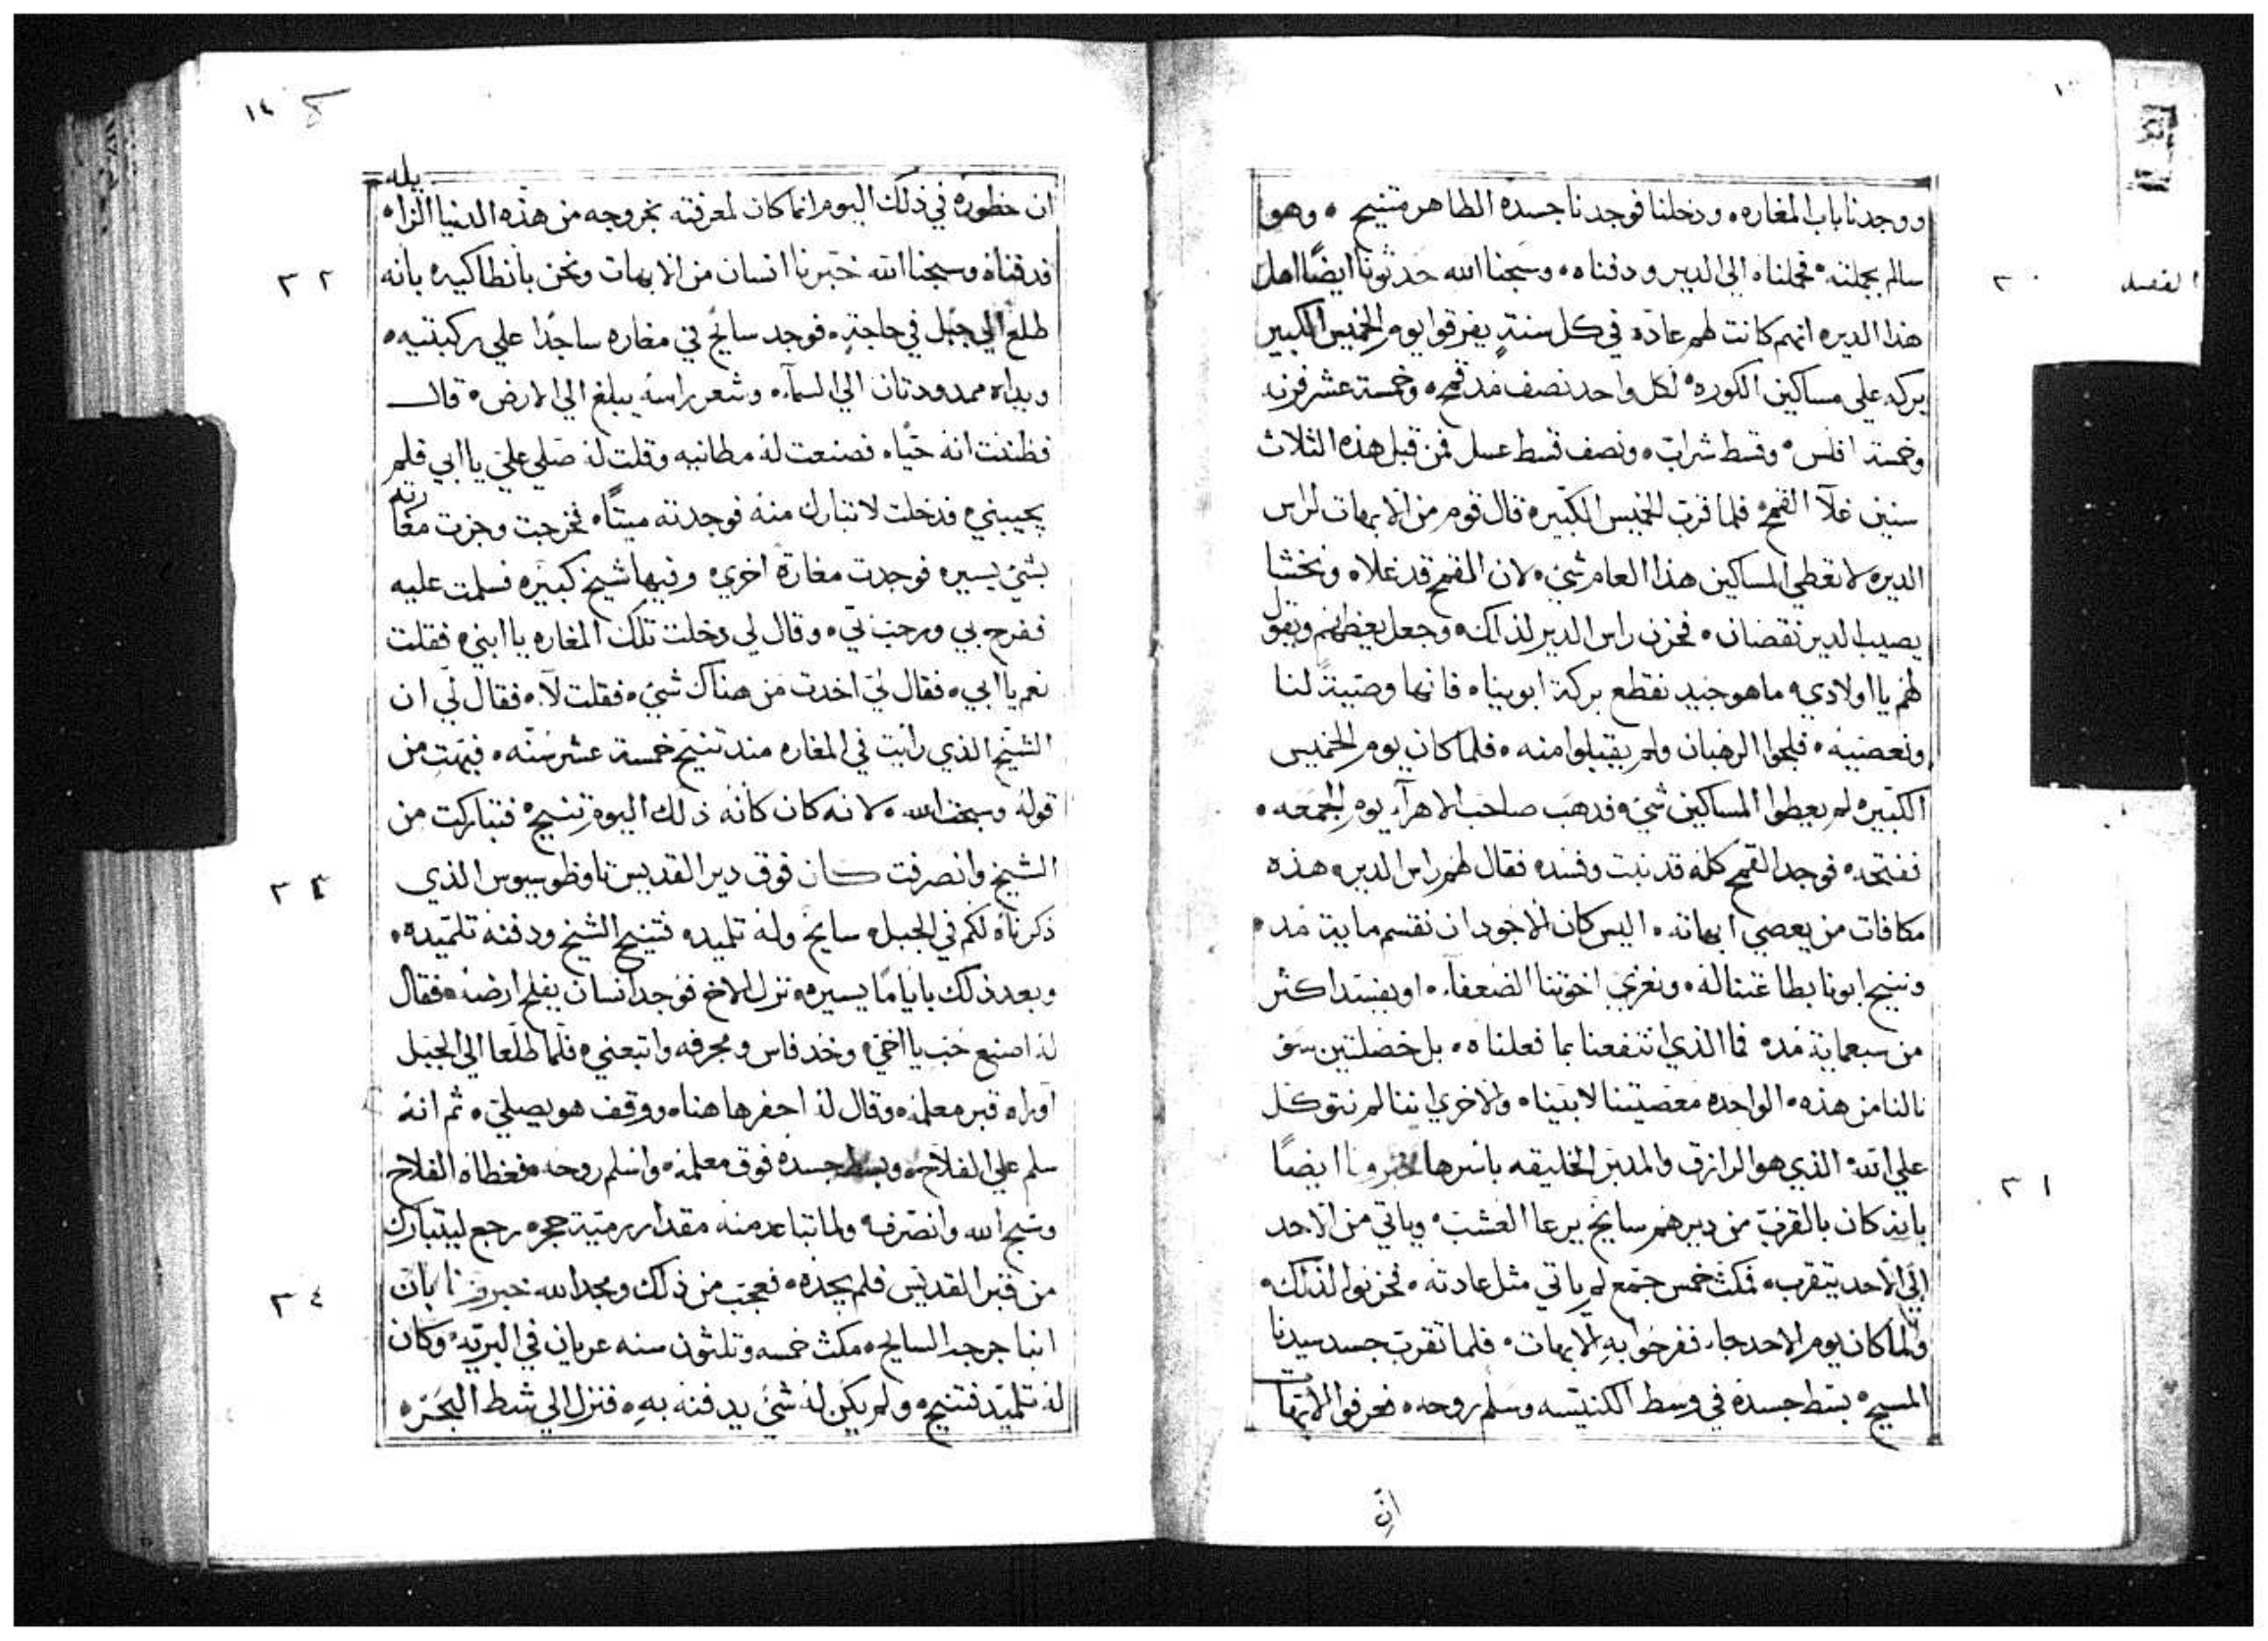 ووجدنا باب المغاره ۰ ودخلنا فوجدنا جسده الطاهر متنيح ۰ وهوا
سالم بجملته ۰ فحملناه الي الدير ودفناه ۰ وسبحنا الله حدثونا ايضًا اهل
هذا الديره انهم كانت لهم عاده في كل سنةٍ يفرقوا يوم الخميس الكبير
بركه علي مساكين الكوره ۰ لكل واحد نصف مد قمح ۰ وخمسة عشر
وخمسة افلس ۰ وقسط شراب ۰ ونصف قسط عسل فمن قبل هذه الثلاث
سنين غلآ القمح ۰ فلما قرب الخميس الكبيره قال قوم من الابهات لراس
الديره لا نعطي المساكين هذا العام شيء ۰ لان القمح قد غلاه ونخشا
يصيب الدير نقصان ۰ فحزن راس الدير لذلك ۰ وجعل يعظهم ويقول
لهم يا اولادي ۰ ما هو جيد نقطع بركة ابونيا ۰ فانها وصيةً لنا
ونعصيه ۰ فلجوا الرهبان ولم يقبلوا منه ۰ فلما كان يوم الخميس
الكبيره لم يعطوا المساكين شيء فدهب صاحب الاهرآء يوم الجمعه ۰
ففتحه ۰ فوجد القمح كله قد نبت وفسد ۰ فقال لهم راس الديره هذه
مكافات من يعصي ابهاته ۰ اليس كان الاجود ان نقسم ماية مد ۰
ونيح ابونا بطاعتنا له ۰ ونعزي اخوتنا الضعفآء ۰ او يفسد اكثر
من سبعماية مد ۰ فما الذي انتفعنا بما فعلناه ۰ بل خصلتين سو
نالنا من هذه ۰ الواحده معصيتنا لابينا ۰ والاخري اننا لم نتوكل
علي الله ۰ الذي هو الرازق والمدبر الخليقه باسرها خبرونا ايضًا
بانه كان بالقرب من ديرهم سايح يرعا العشب ۰ وياتي من الاحد
الي الاحد يتقرب ۰ فمكث خمس جمع لم ياتي مثل عادته ۰ فحزنوا لذلك ۰
ولما كان يوم الاحد جاء ۰ ففرحوا به الابهات ۰ فلما تقرب جسد سيدنا
المسيح ۰ بسط جسده في وسط الكنيسه وسلم روحه ۰ فعرفوا الابهات
انّ
الفصل
٢٠
٢١
١٤
ان حظوره في ذلك اليوم انما كان لمعرفته بخروجه من هذه الدنيا الزاه
يله
فدفناه وسبحنا الله خبرنا انسان من الابهات ونحن بانطاكيه ۰ بانه
طلع الي جبل في حاجةٍ ۰ فوجد سايح في مغاره ساجدًا علي ركبتيه ۰
ويداه ممدودتان الي السمآء ۰ وشعر راسه يبلغ الي الارض ۰ قال
فظننت انه حيًا ۰ فصنعت له مطانيه وقلت له صلي علي يا ابي فلم
يجيبني ۰ فدخلت لاتبارك منه فوجدته ميتًا ۰ فخرجت وجزت مغارته
بشيء يسيره فوجدت مغارة اخري ۰ وفيها شيخ كبيره فسلمت عليه
ففرح بي ورحب بي ۰ وقال لي دخلت تلك المغاره يا ابني ۰ فقلت
نعم يا ابي ۰ فقال لي اخدت من هناك شيء ۰ فقلت لآ ۰ فقال لي ان
الشيخ الذي رايت في المغاره مند تنيح خمسة عشر سنه ۰ فبهت من
قوله وسبحت الله ۰ لانه كان كانه ذلك اليوم تنيح ۰ فتباركت من
الشيخ وانصرفت كان فوق دير القديس تاوظوسيوس الذي
ذكرناه لكم في الجبل ۰ سايح وله تلميد ۰ فتنيح الشيخ ودفنه تلميده ۰
وبعد ذلك باياما يسيره نزل الاخ فوجد انسان يفلح ارضه ۰ فقال
له اصنع حب يا اخي ۰ وخد فاس ومجرفه واتبعني ۰ فلما طلعا الي الجبل
اوراه قبر معلمه ۰ وقال له احفر هاهنا ۰ ووقف هو يصلي ۰ ثم انه
سلم علي الفلاح ۰ وبسط جسده فوق معلمه ۰ واسلم روحه ۰ فغطاه الفلاح
وسبح الله وانصرف ۰ ولما تباعد منه مقدار رمية حجر ۰ رجع ليتبارك
من قبر القديس فلم يجده ۰ فعجب من ذلك ومجد الله خبرونا بان
انبا جرجه السايح ۰ مكث خمسه وتلثون سنه عريان في البريه ۰ وكان
له تلميد فتنيح ۰ ولم يكن له شيء يدفنه به ۰ فنزل الي شط البحر ۰
٢٢
٢٣
٢٤